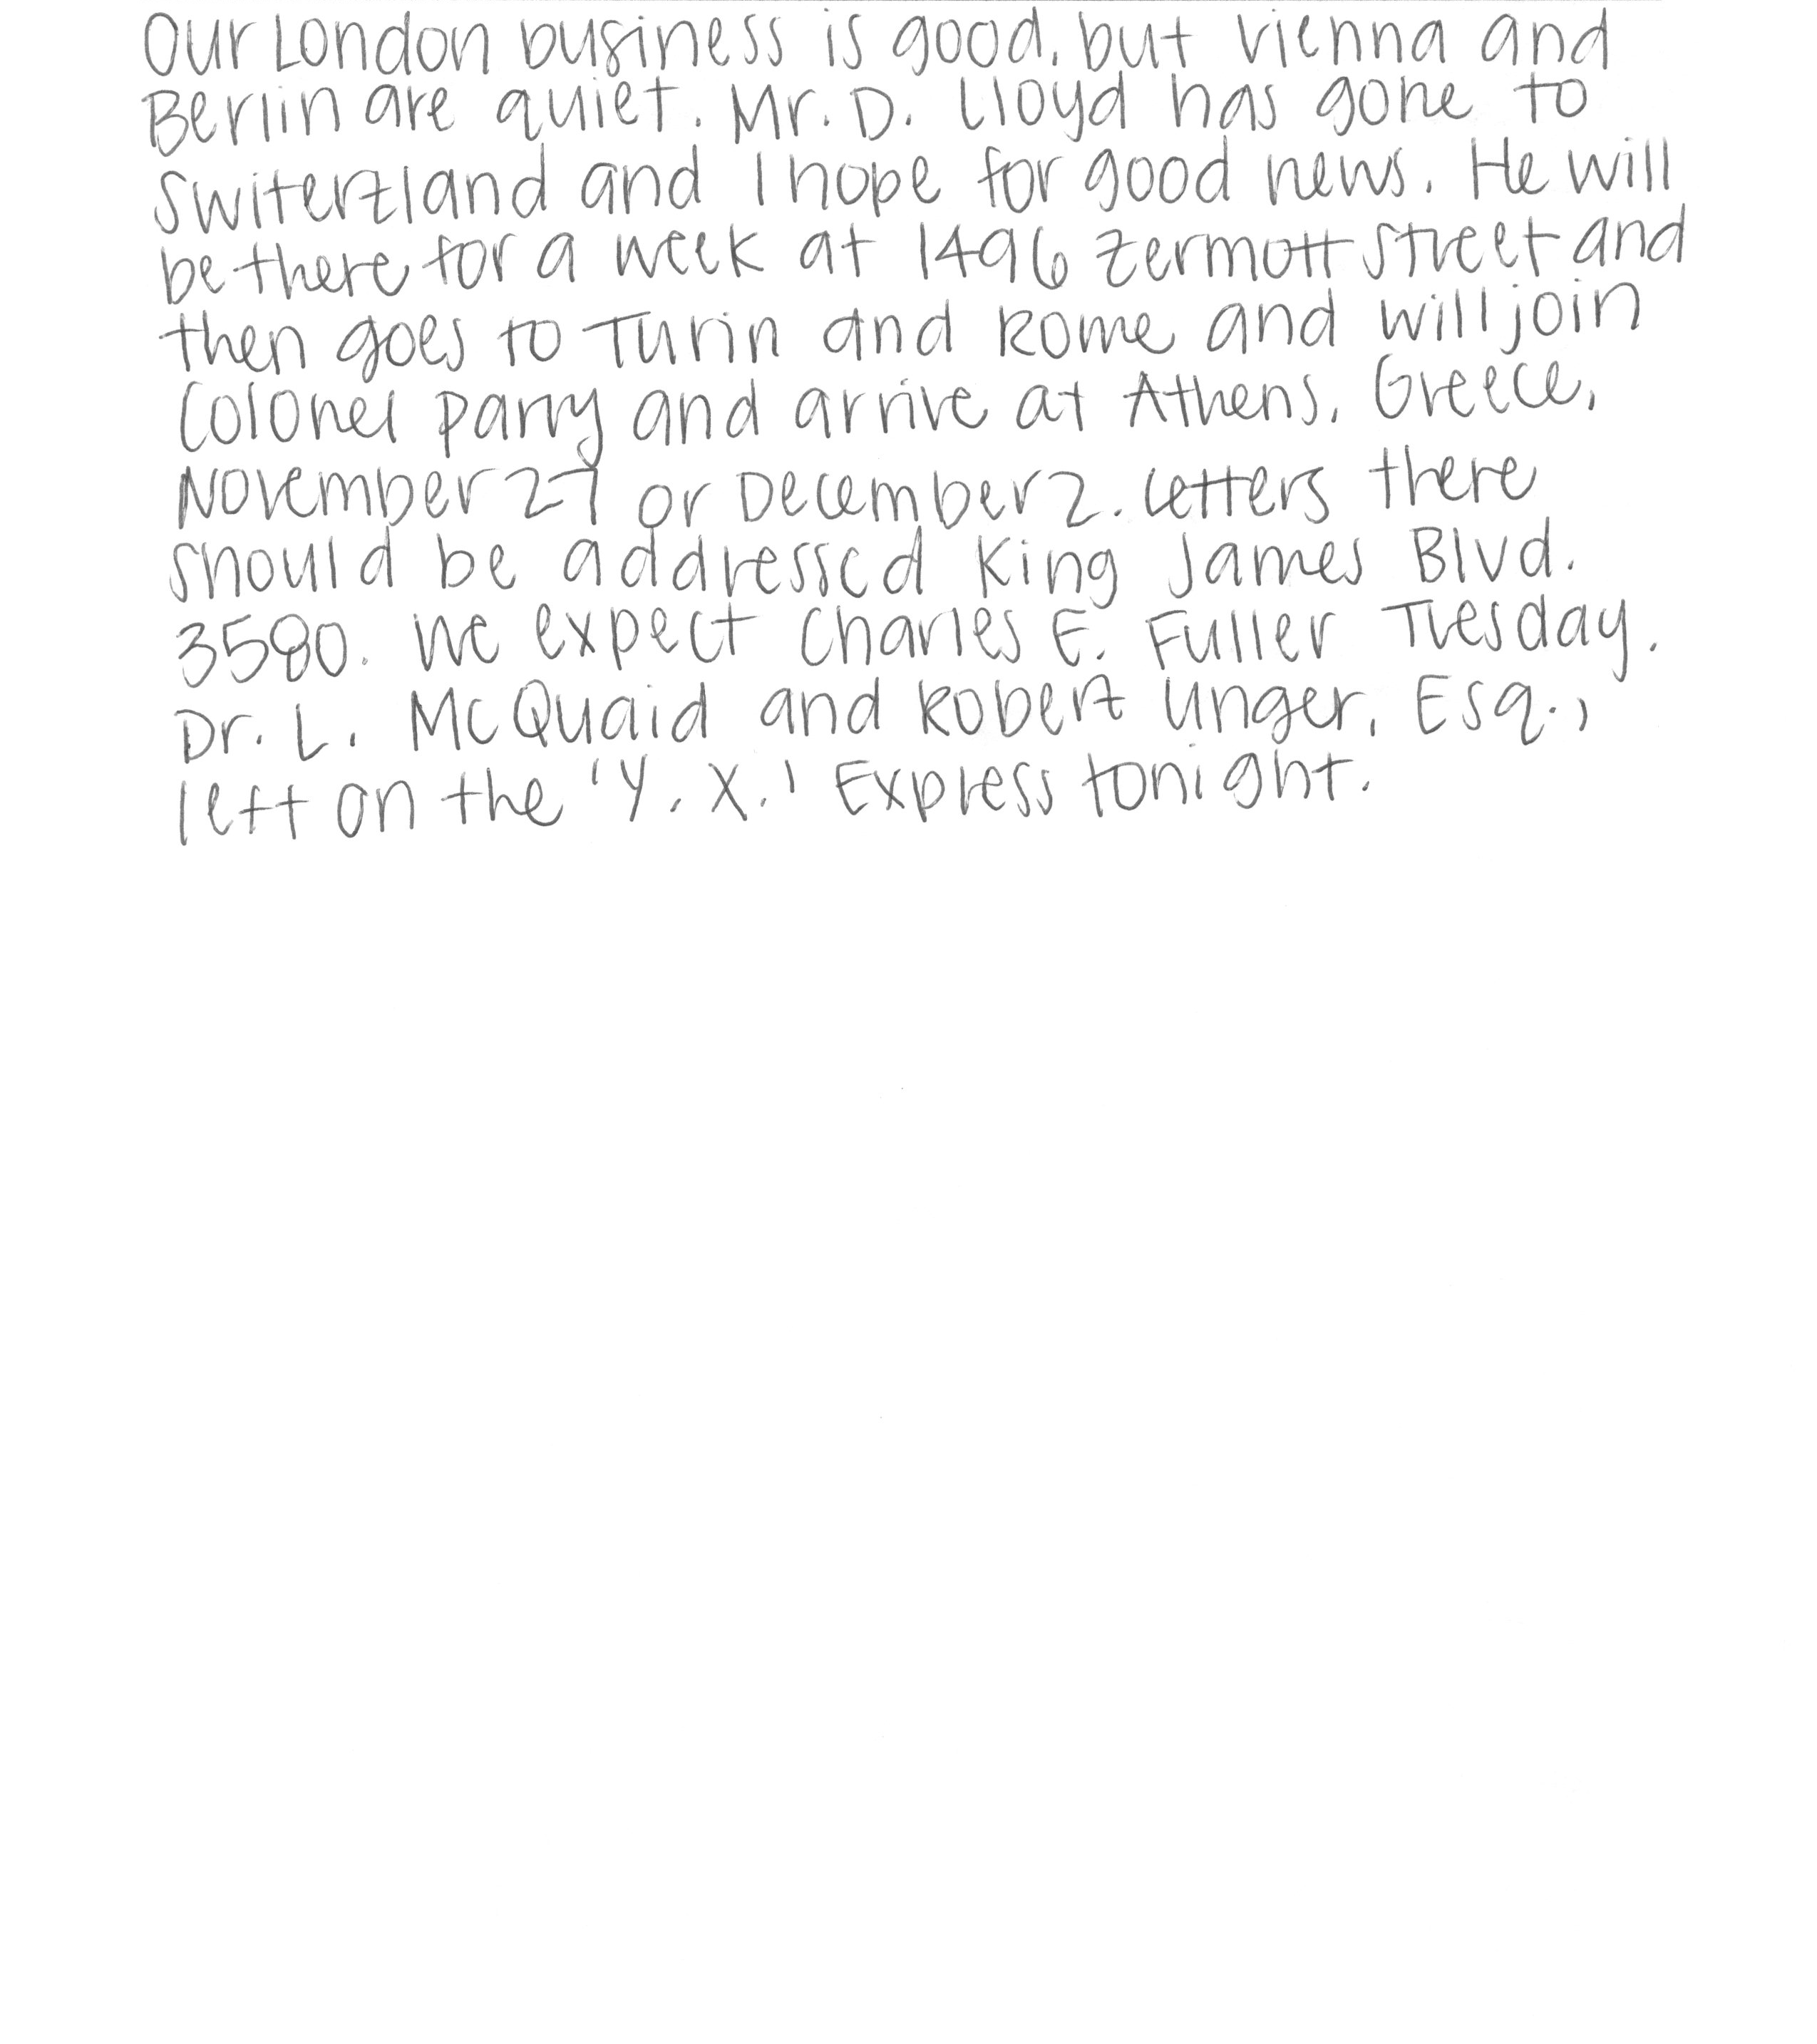 Our London business is good, but Vienna and
Berlin are quiet. Mr. D. Lloyd has gone to
Switerzland and I hope for good news. He will
be there for a week at 1496 Zermott Street and
then goes to Turin and Rome and will join
Colonel Parry and arrive at Athens, Greece,
November 27 or December 2. Letters there
should be addressed King James Blvd.
3580. We expect Charles E. Fuller Tuesday.
Dr. L. McQuaid and Robert Unger, Esq.,
left on the 'Y. X.' Express tonight.